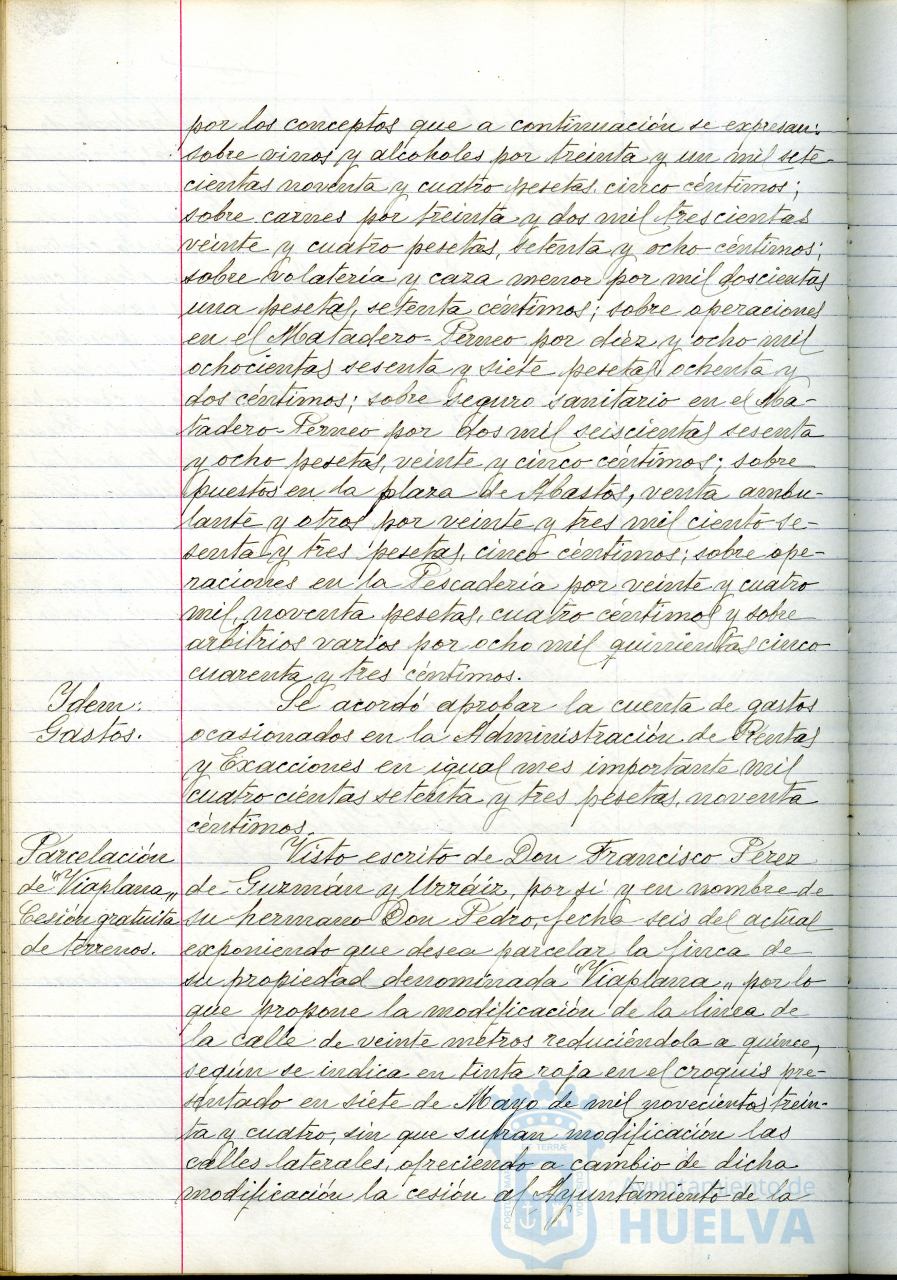 por los conceptos que a continuación se expresan:
sobre vinos y alcoholes por treinta y un mil sete-
cientas noventa y cuatro pesetas, cinco céntimos;
sobre carnes por treinta y dos mil trescientas
veinte y cuatro pesetas, setenta y ocho céntimos;
sobre volatería y caza menor por mil doscientas
una pesetas, setenta céntimos; sobre operaciones
en el Matadero-Perneo por diez y ocho mil
ochocientas sesenta y siete pesetas, ochenta y
dos céntimos; sobre seguro sanitario en el Ma-
tadero-Perneo por dos mil seiscientas sesenta
y ocho pesetas, veinte y cinco céntimos; sobre
puestos en la plaza de Abastos, venta ambu-
lante y otros por veinte y tres mil ciento se-
senta y tres pesetas, cinco céntimos; sobre ope-
raciones en la Pescadería por veinte y cuatro
mil, noventa pesetas, cuatro céntimos y sobre
arbitrios varios por ocho mil quinientas cinco
cuarenta y tres céntimos.
Ydem:
Gastos.
Se acordó aprobar la cuenta de gastos
ocasionados en la Administración de Rentas
y Exacciones en igual mes importante mil
cuatrocientas setenta y tres pesetas, noventa
céntimos.
Parcelación
de "Viaplana"
Cesión gratuita
de terrenos.
Visto escrito de Don Francisco Pérez
de Guzmán y Urzáiz, por sí y en nombre de
su hermano Don Pedro, fecha seis del actual
exponiendo que desea parcelar la finca de
su propiedad denominada "Viaplana" por lo
que propone la modificación de la línea de
la calle de veinte metros reduciéndola a quince,
según se indica en tinta roja en el croquis pre-
sentado en siete de Mayo de mil novecientos trein-
ta y cuatro, sin que sufran modificación las
calles laterales, ofreciendo a cambio de dicha
modificación la cesión al Ayuntamiento de la
Ayuntamiento de
HUELVA